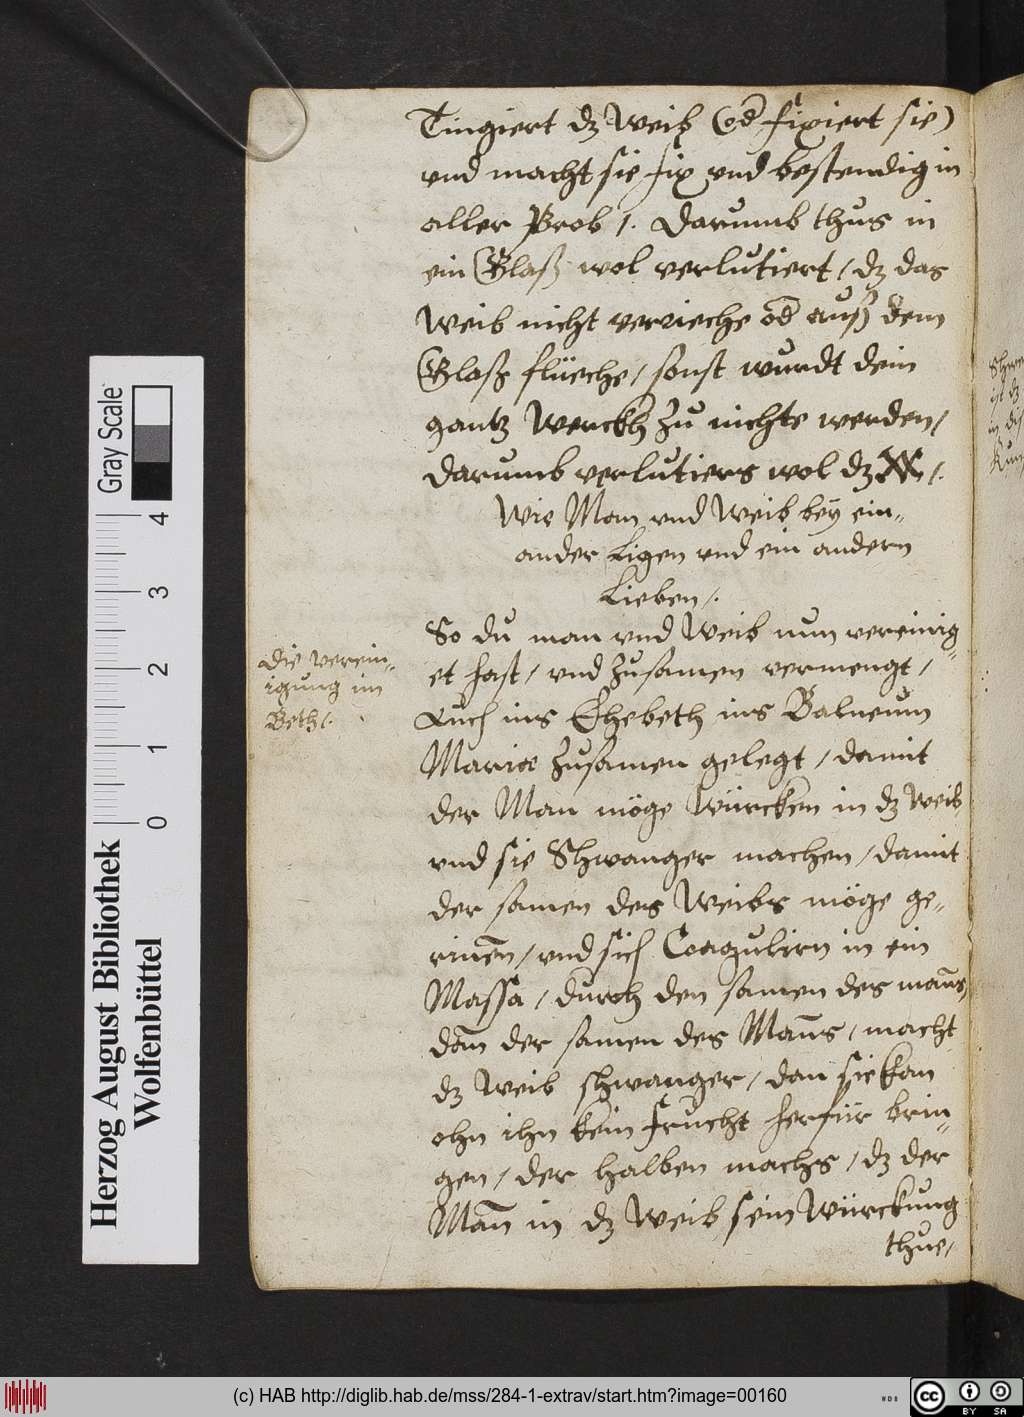 Tingiert dz Weib (od fixiert sie)
vnd macht sie fix vnd bestendig in
aller Prob /. Darumb thus in
ein Glaß wol verlutiert / dz das
Weib nicht verrieche od auß dem
Glaß flüeche / sonst wurdt dein
gantz Werckh zu nichte werden /
darumb verlutiers wol dz /.
Wie Man vnd Weib bey ein„
ander Ligen vnd ein andern
Lieben /.
So du man vnd Weib nun vereinig„
et hast / vnd zusamen vermengt /
Auch ins Ehebeth ins Balneum
Mariæ zusamen gelegt / damit
der Man möge Würcken in dz Weib
vnd sie Schwanger machen / damit
der samen des Weibs möge ge„
rinen / vnd sich Coagulirn in ein
Massa / durch den samen des mans
dan der samen des Mans / macht
dz Weib schwanger / dan sie kan
ohn ihn kein frucht herfür brin„
gen / der halben machs / dz der
Man in dz Weib sein Würckung
thue /
die verein„
igung im
Beth /.
Gray Scale
4
3
2
1
0
Herzog August Bibliothek
Wolfenbüttel
(c) HAB http://diglib.hab.de/mss/284-1-extrav/start.htm?image=00160
WDB
cc
BY SA